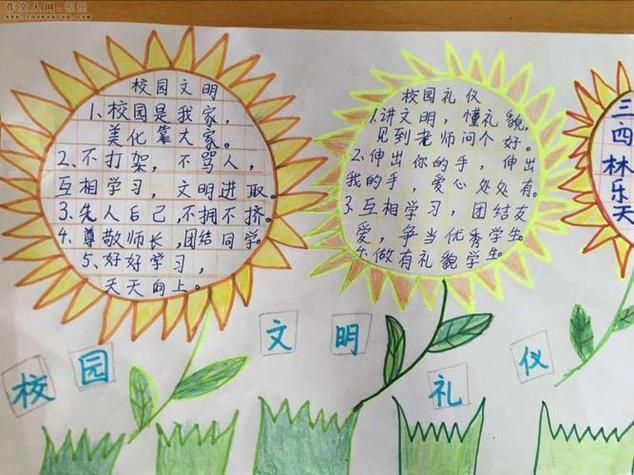 作文人网
校园文明
1、校园是我家，
美化靠大家。
2、不打架，不骂人，
互相学习，文明进取。
3、先人后己，不拥不挤。
4、尊敬师长，团结同学。
5、好好学习，
天天向上。
校园礼仪
1.讲文明，懂礼貌，
见到老师问个好。
2.伸出你的手，伸出
我的手，爱心处处有。
3.互相学习，团结友
爱，争当优秀学生。
4.做有礼貌学生。
三.四
林乐天
校园文明礼仪